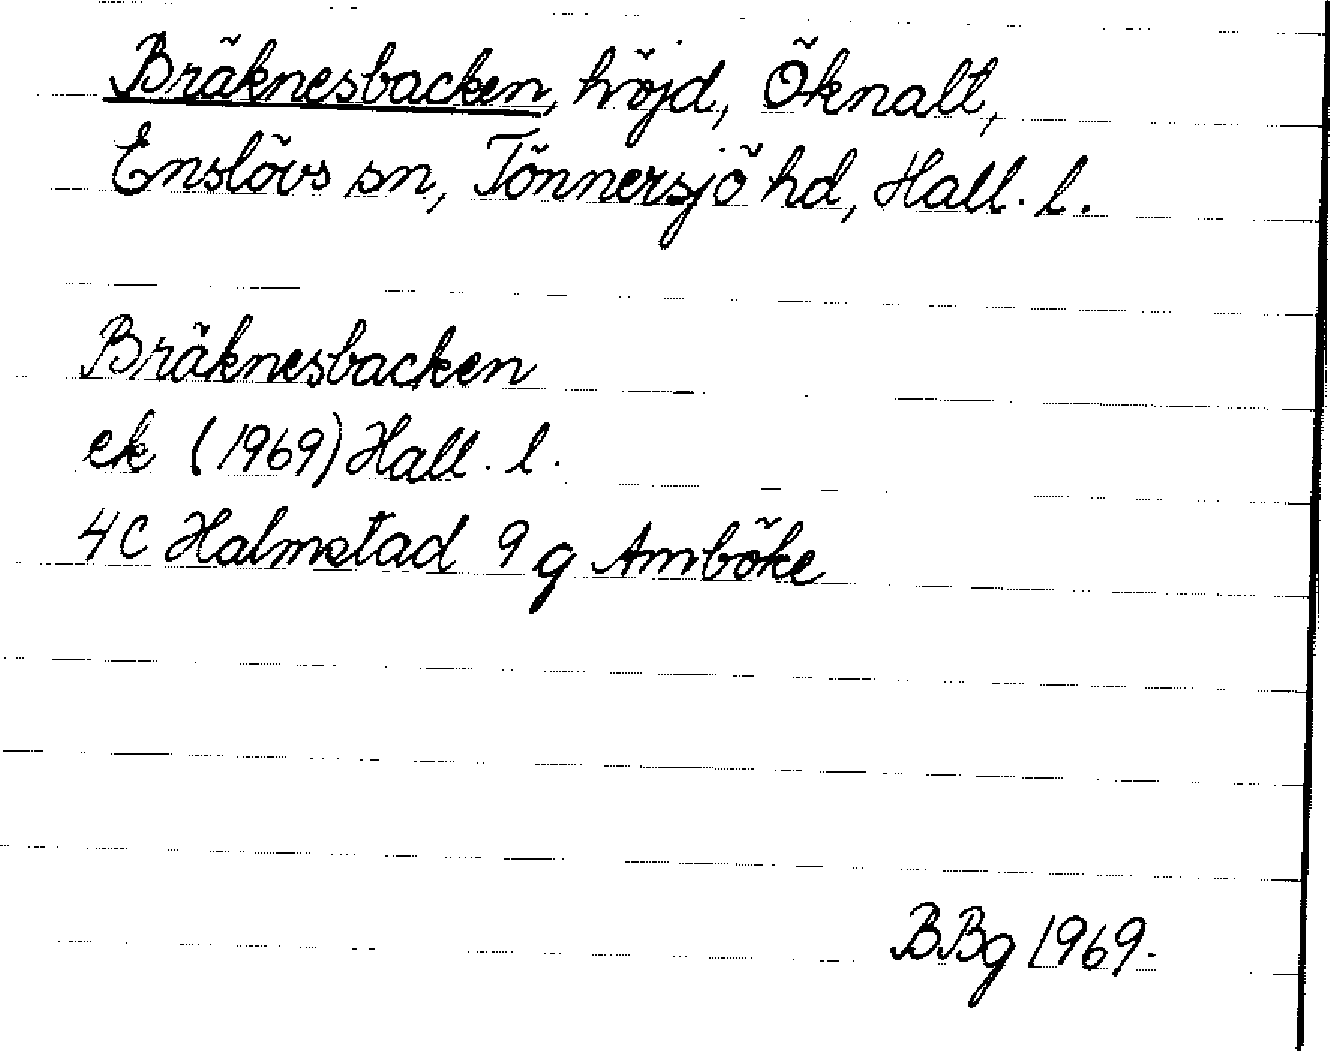 Bräknesbacken, höjd, Öknalt,
Enslövs sn, Tönnersjö hd, Hall. l.
Bräknesbacken
ek (1969) Hall. l.
4C Halmstad 9 g Amböke
BBg 1969.